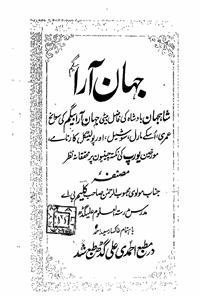 جہان آرا
شاہجہان بادشاہ کی فاضل بیٹی جہان آرا بیگم کی سوانح
عمری اُسکے مارل، سوشیل، اور پولیٹکل کارنامے،
مورخین یورپ کی نکتہ چینیوں پر محققانہ نظر
مصنفہ
جناب مولوی محبوب الرحمن صاحب کلیم بی اے
مدرس مدرسۃ العلوم علیگڑھ
باہتمام
در مطبع احمدی علی گڑھ طبع شد